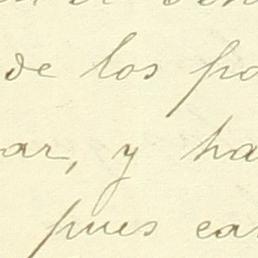 de los po
ar, y ha
pues can